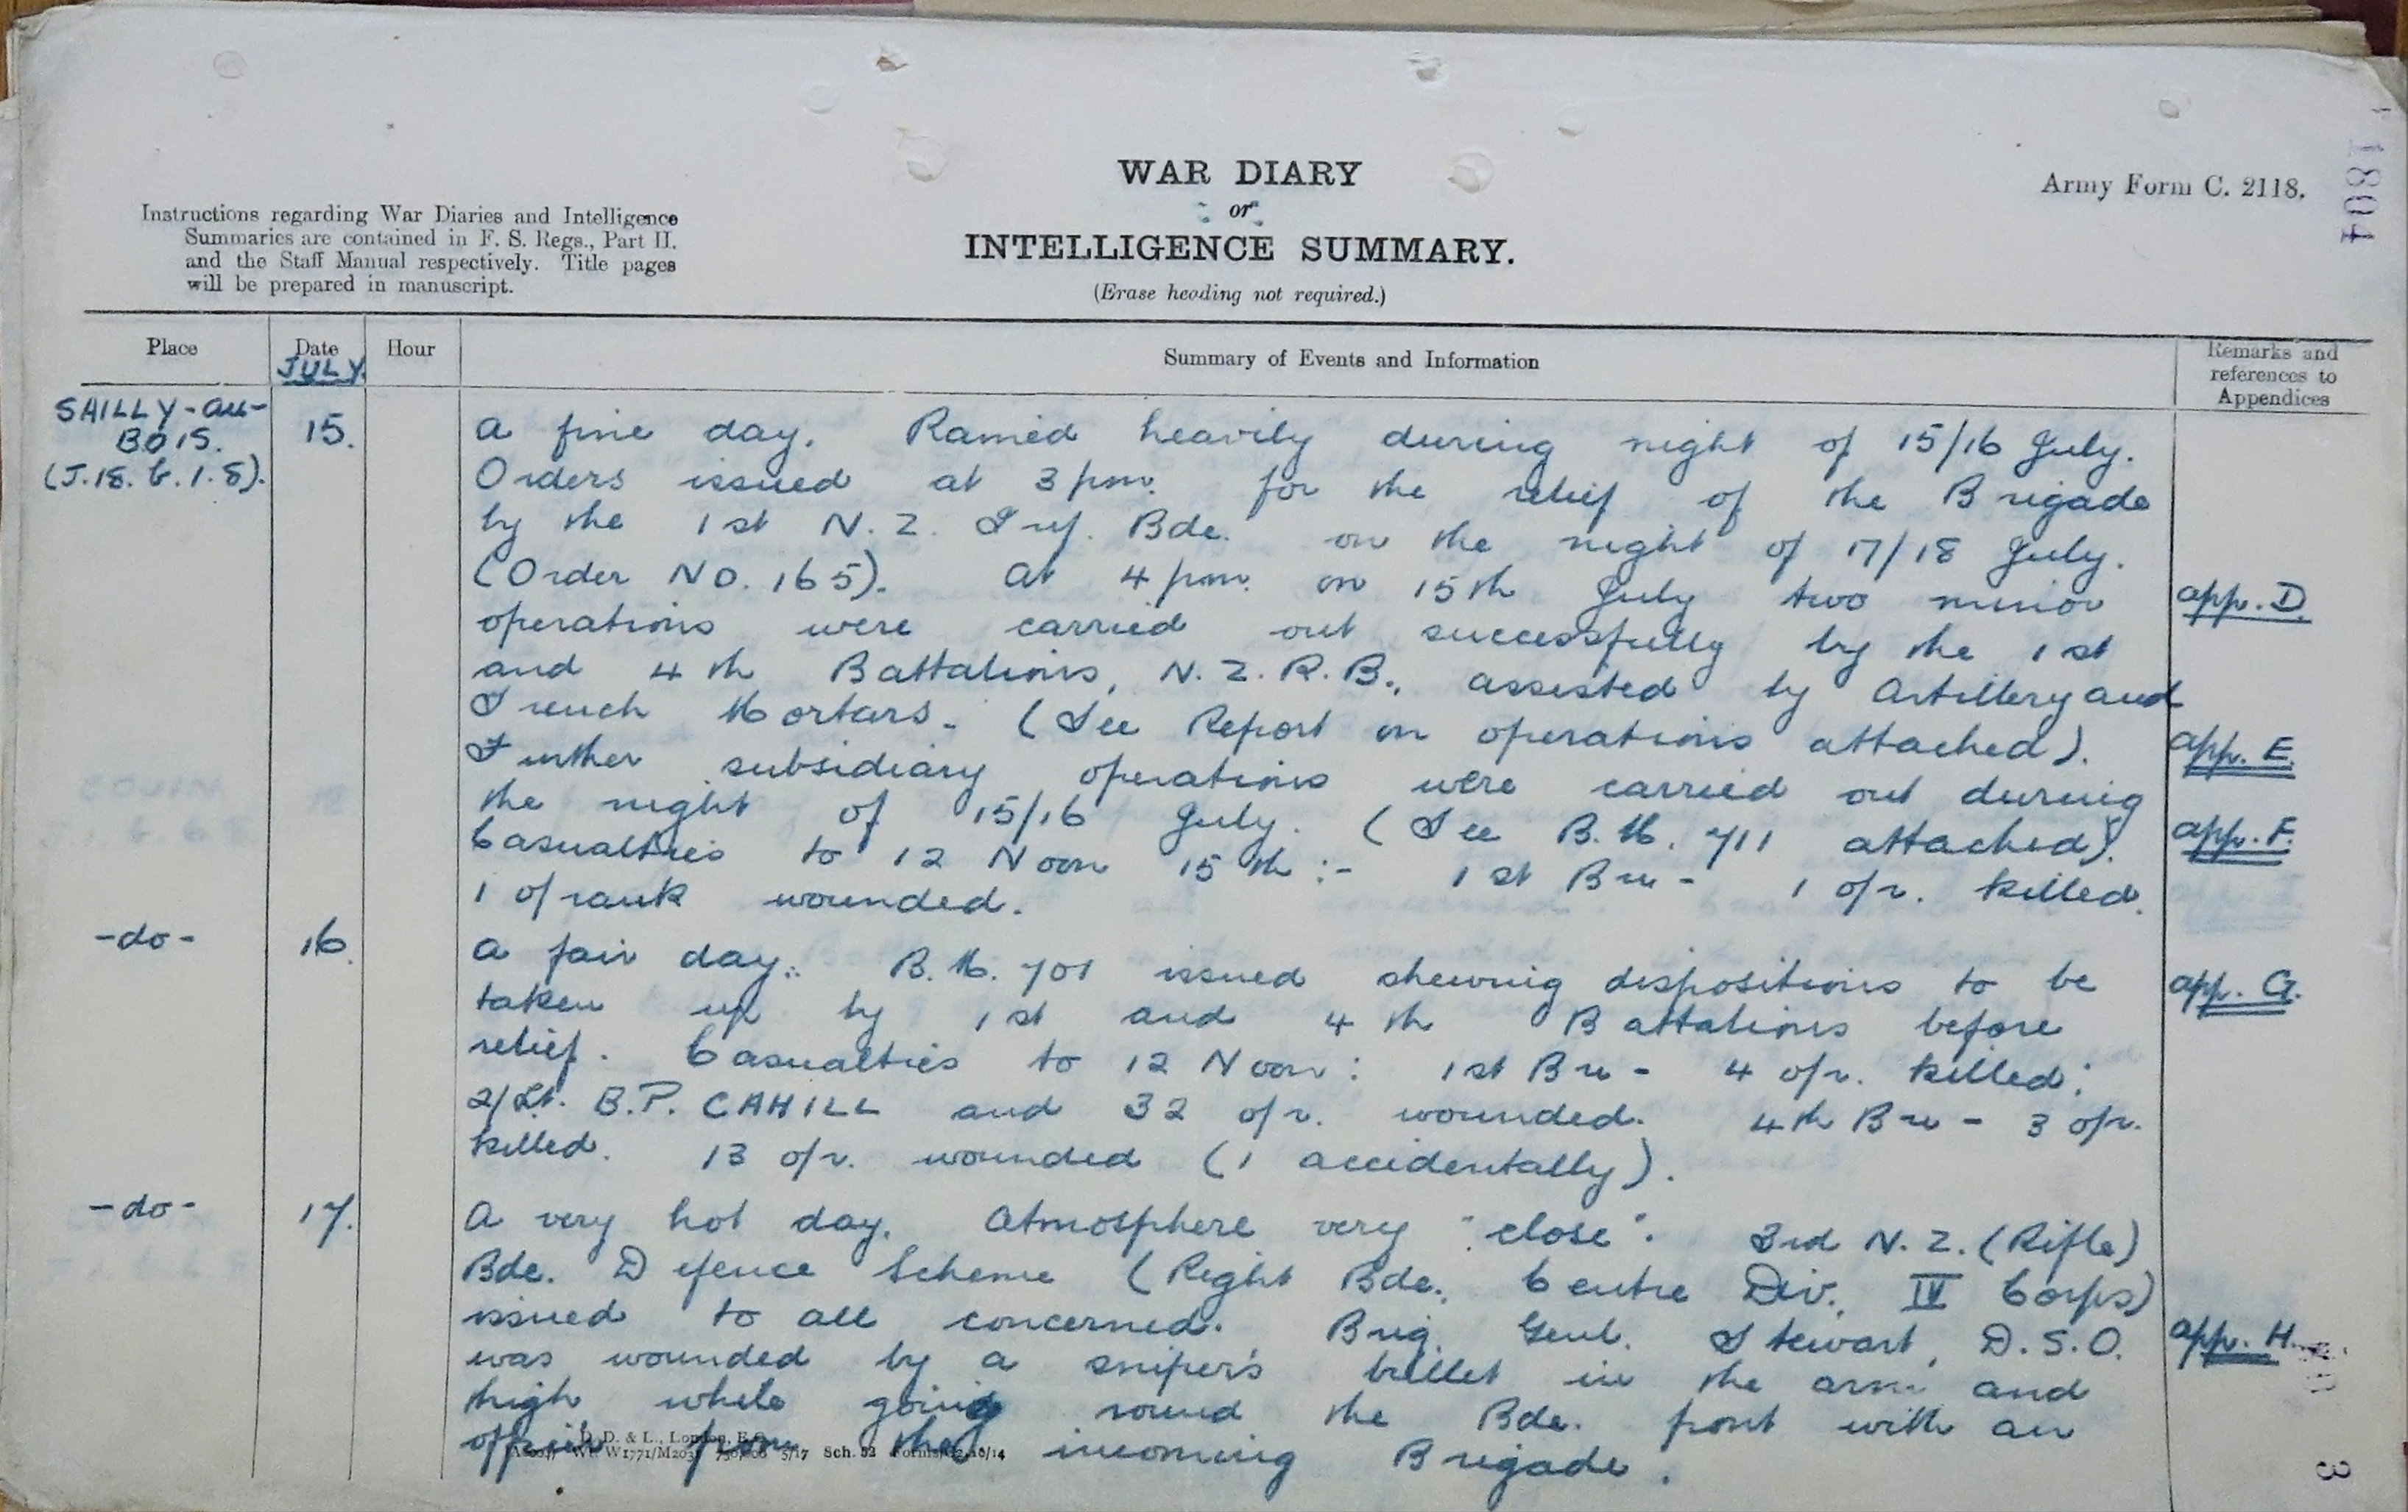 1804
WAR DIARY
or
INTELLIGENCE SUMMARY.
(Erase heading not required.)
Army Form C. 2118.
Instructions regarding War Diaries and Intelligence
Summaries are contained in F. S. Regs., Part II.
and the Staff Manual respectively. Title pages
will be prepared in manuscript.
Place
Date
JULY.
Hour
Summary of Events and Information
Remarks and
references to
Appendices
SAILLY-au-
BOIS.
(J.18.b.1.8).
15.
A fine day. Rained heavily during night of 15/16 July.
Orders issued at 3 pm. for the relief of the Brigade
by the 1st N.Z. Inf. Bde. on the night of 17/18 July.
(Order No. 165). At 4 pm. on 15th July two minor
app. D.
operations were carried out successfully by the 1st
and 4th Battalions, N.Z.R.B., assisted by Artillery and
Trench Mortars. (See Report on operations attached).
app. E.
Further subsidiary operations were carried out during
the night of 15/16 July. (See B.M. 711 attached).
app. F.
Casualties to 12 Noon 15th :- 1st Bn - 1 o/r. killed.
1 o/rank wounded.
-do-
16.
A fair day. B.M. 701 issued shewing dispositions to be
app. G.
taken up by 1st and 4th Battalions before
relief. Casualties to 12 Noon: 1st Bn - 4 o/r. killed:
2/Lt. B.P. CAHILL and 32 o/r. wounded. 4th Bn - 3 o/r.
killed. 13 o/r. wounded (1 accidentally).
-do-
17.
A very hot day. Atmosphere very "close". 3rd N.Z. (Rifle)
Bde. Defence Scheme (Right Bde., Centre Div., IV Corps)
issued to all concerned. Brig. Genl. Stewart, D.S.O.
app. H.
was wounded by a sniper's bullet in the arm and
thigh while going round the Bde. front with an
officer from the incoming Brigade.
D. D. & L., London, E.C.
W1771/M2031 5/17 Sch. 52
3